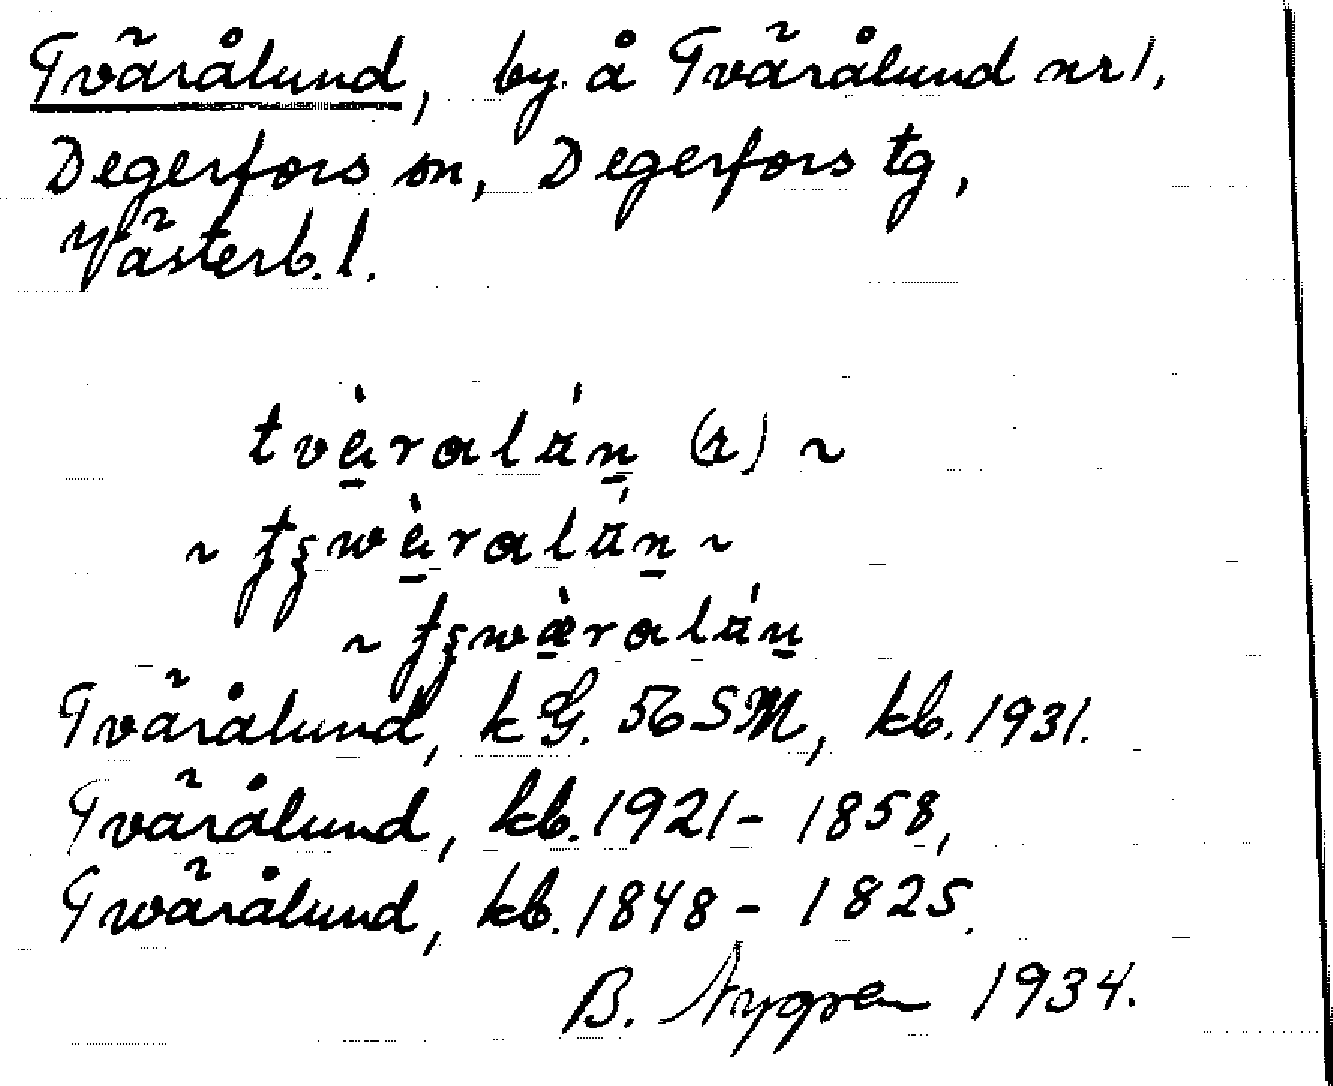 Tvärålund, by å Tvärålund nr 1,
Degerfors sn, Degerfors tg,
Västerb. l.
Tvärålund, k G. 56 SM, kb. 1931.
Tvärålund, kb. 1921 - 1858,
Twärålund, kb. 1848 - 1825.
B. Nygren 1934.